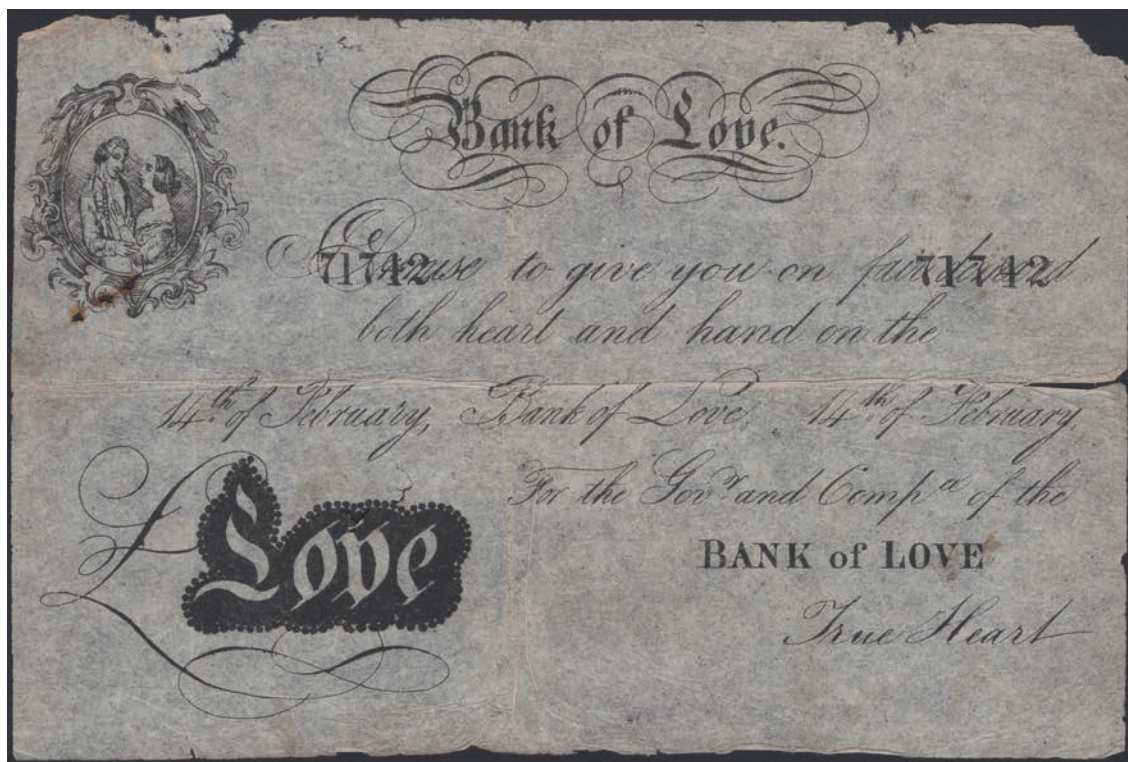 Bank of Love.
71742 71742
to give you on
both heart and hand on the
14th of February, Bank of Love, 14th of February,
For the Govr and Compa of the
£ Love
BANK of LOVE
True Heart